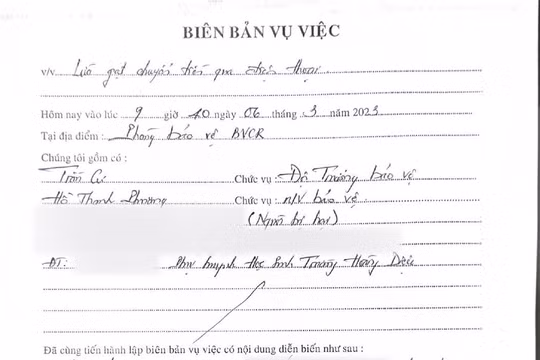 BIÊN BẢN VỤ VIỆC
V/v Lừa gạt chuyển tiền qua điện thoại
Hôm nay vào lúc 9 giờ 40 ngày 06 tháng 3 năm 2023
Tại địa điểm : Phòng bảo vệ BVCR
Chúng tôi gồm có :
Trần Cư Chức vụ : Đội Trưởng bảo vệ
Hồ Thanh Phương Chức vụ : n/v bảo vệ
(Người bị hại)
ĐT: Phụ huynh Học sinh Trường Hoàng Diệu
Đã cùng tiến hành lập biên bản vụ việc có nội dung diễn biến như sau :